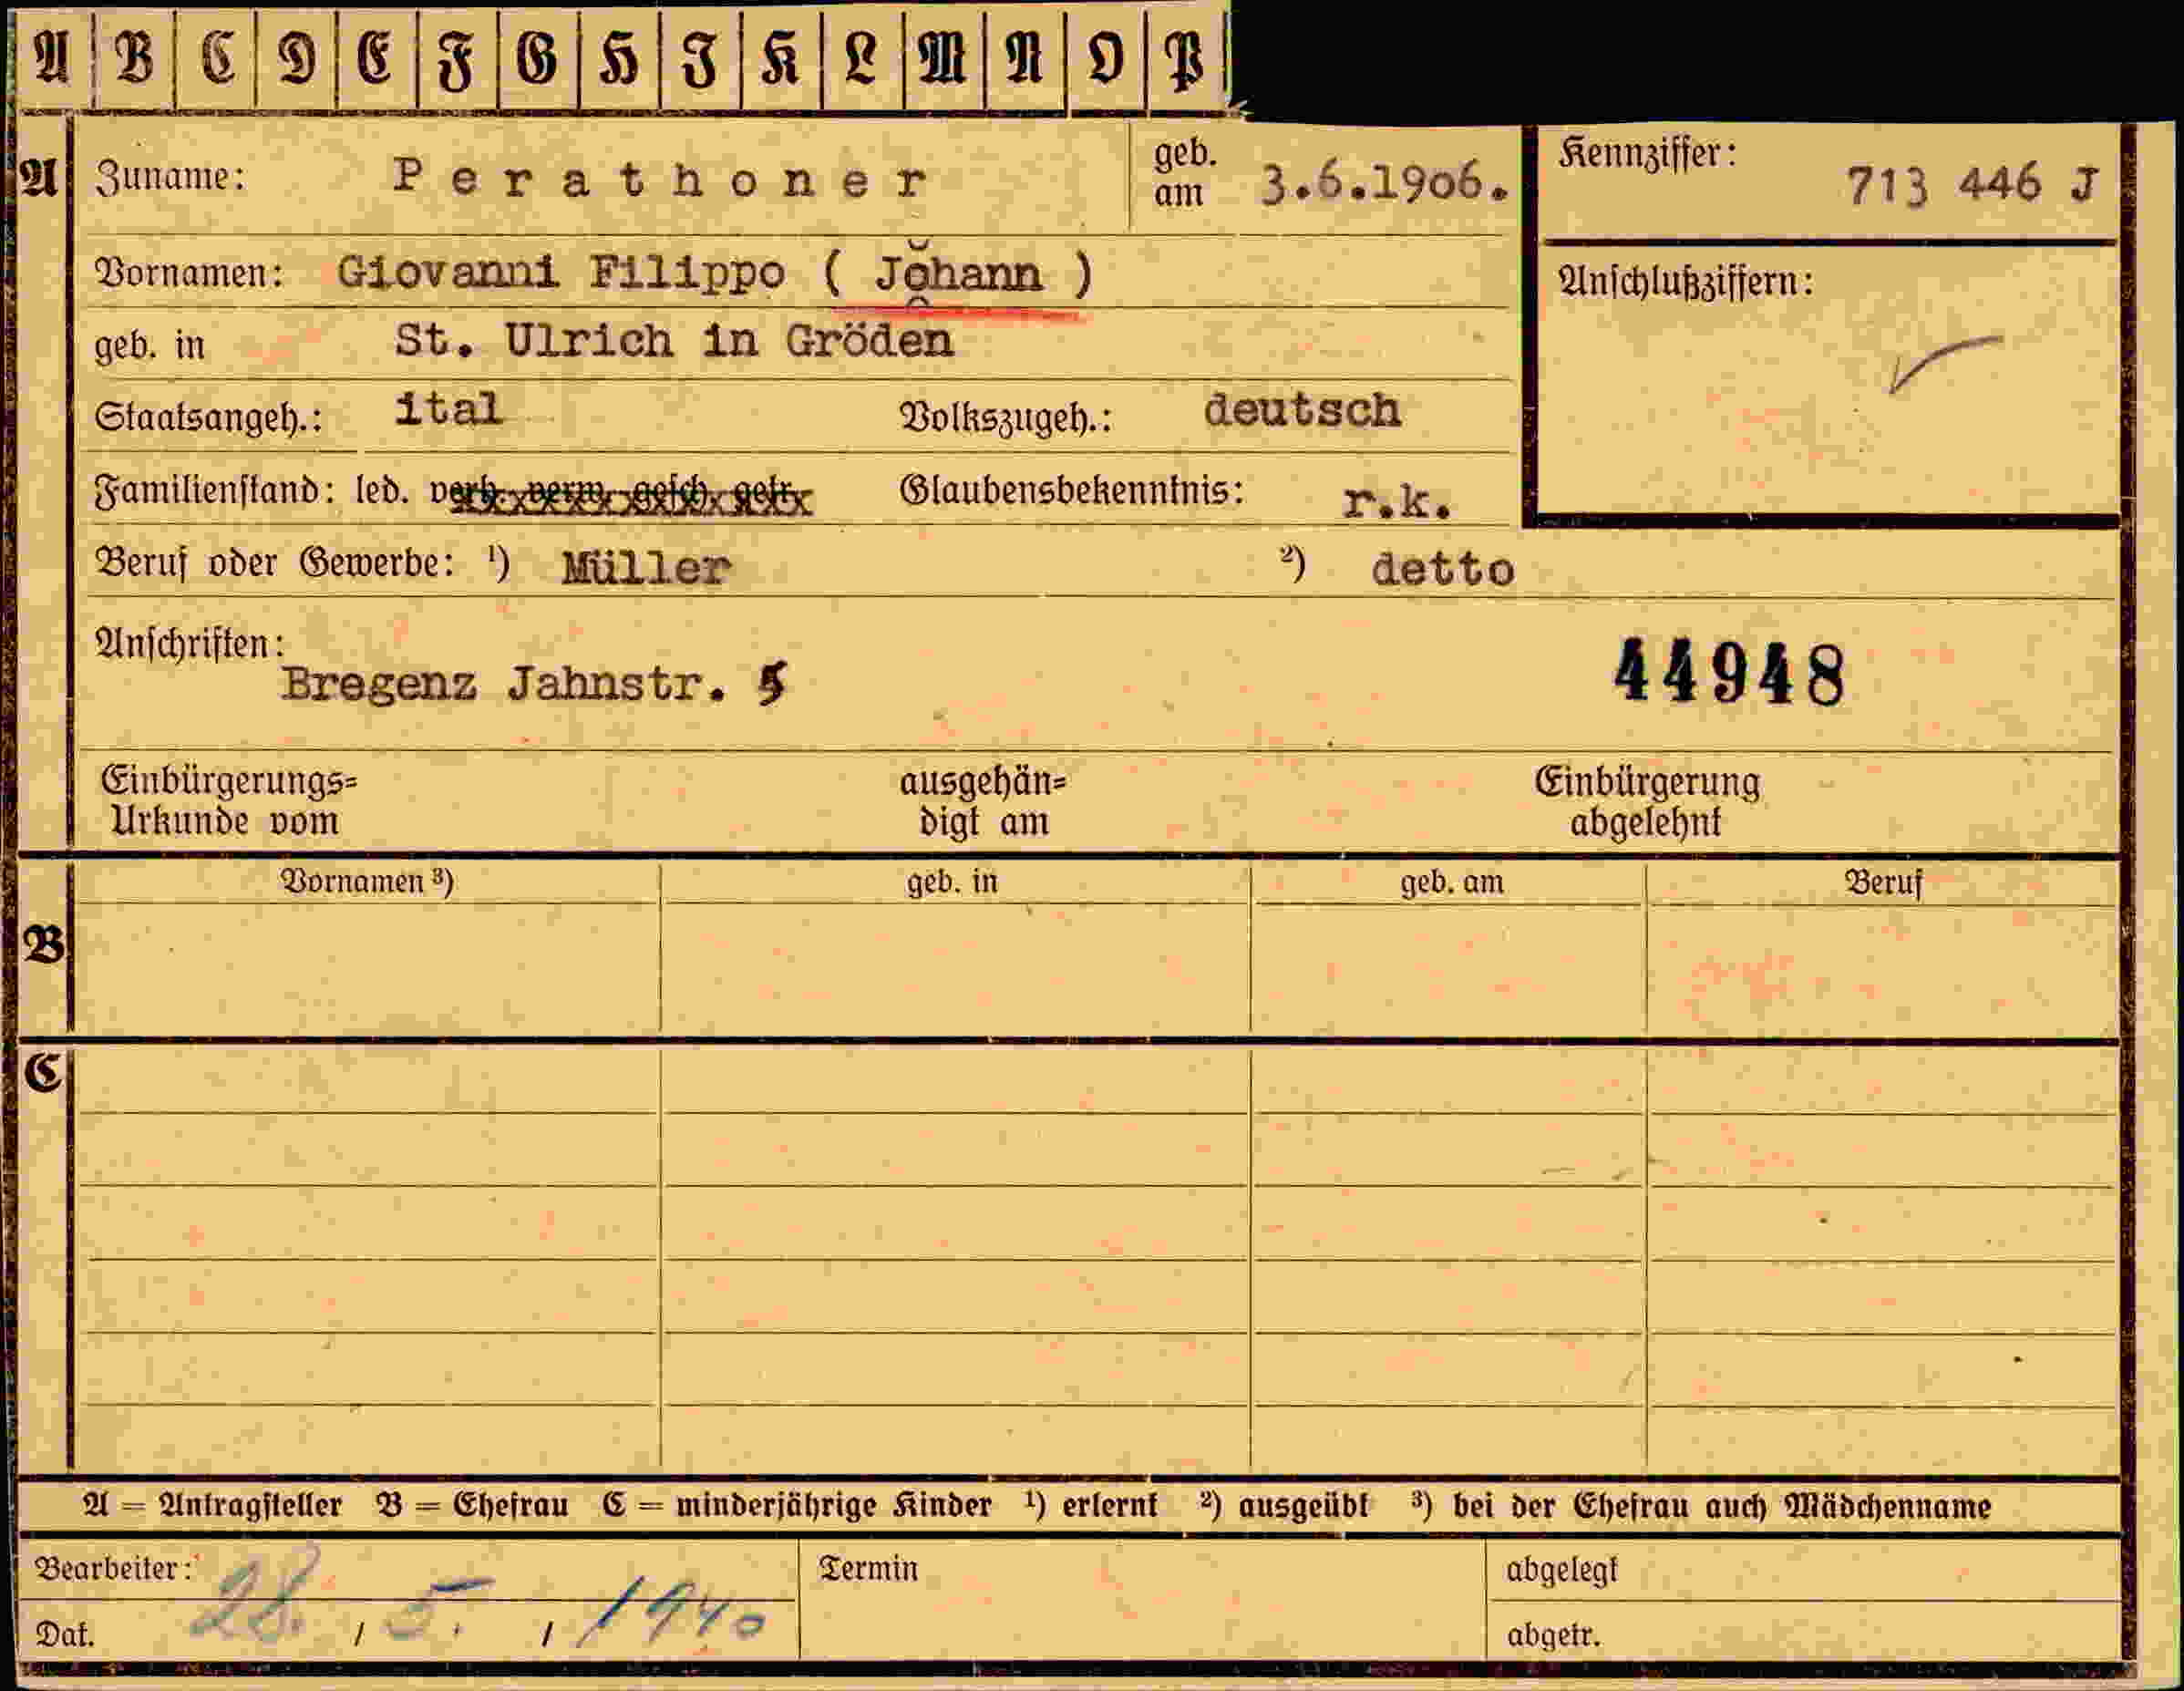 A B C D E F G H I K L M N O P
A Zuname: Perathoner geb. am 3.6.1906. Kennziffer: 713 446 J
Vornamen: Giovanni Filippo ( Johann )
Anschlußziffern:
geb. in St. Ulrich in Gröden
Staatsangeh.: ital Volkszugeh.: deutsch
Familienstand: led. verh. verw. gesch. getr. Glaubensbekenntnis: r.k.
Beruf oder Gewerbe: ¹) Müller ²) detto
Anschriften:
Bregenz Jahnstr. 5 44948
Einbürgerungs= ausgehän= Einbürgerung
Urkunde vom digt am abgelehnt
Vornamen ³) geb. in geb. am Beruf
B
C
A = Antragsteller B = Ehefrau C = minderjährige Kinder ¹) erlernt ²) ausgeübt ³) bei der Ehefrau auch Mädchenname
Bearbeiter: Termin abgelegt
Dat. 28. / 5. / 1940 abgetr.